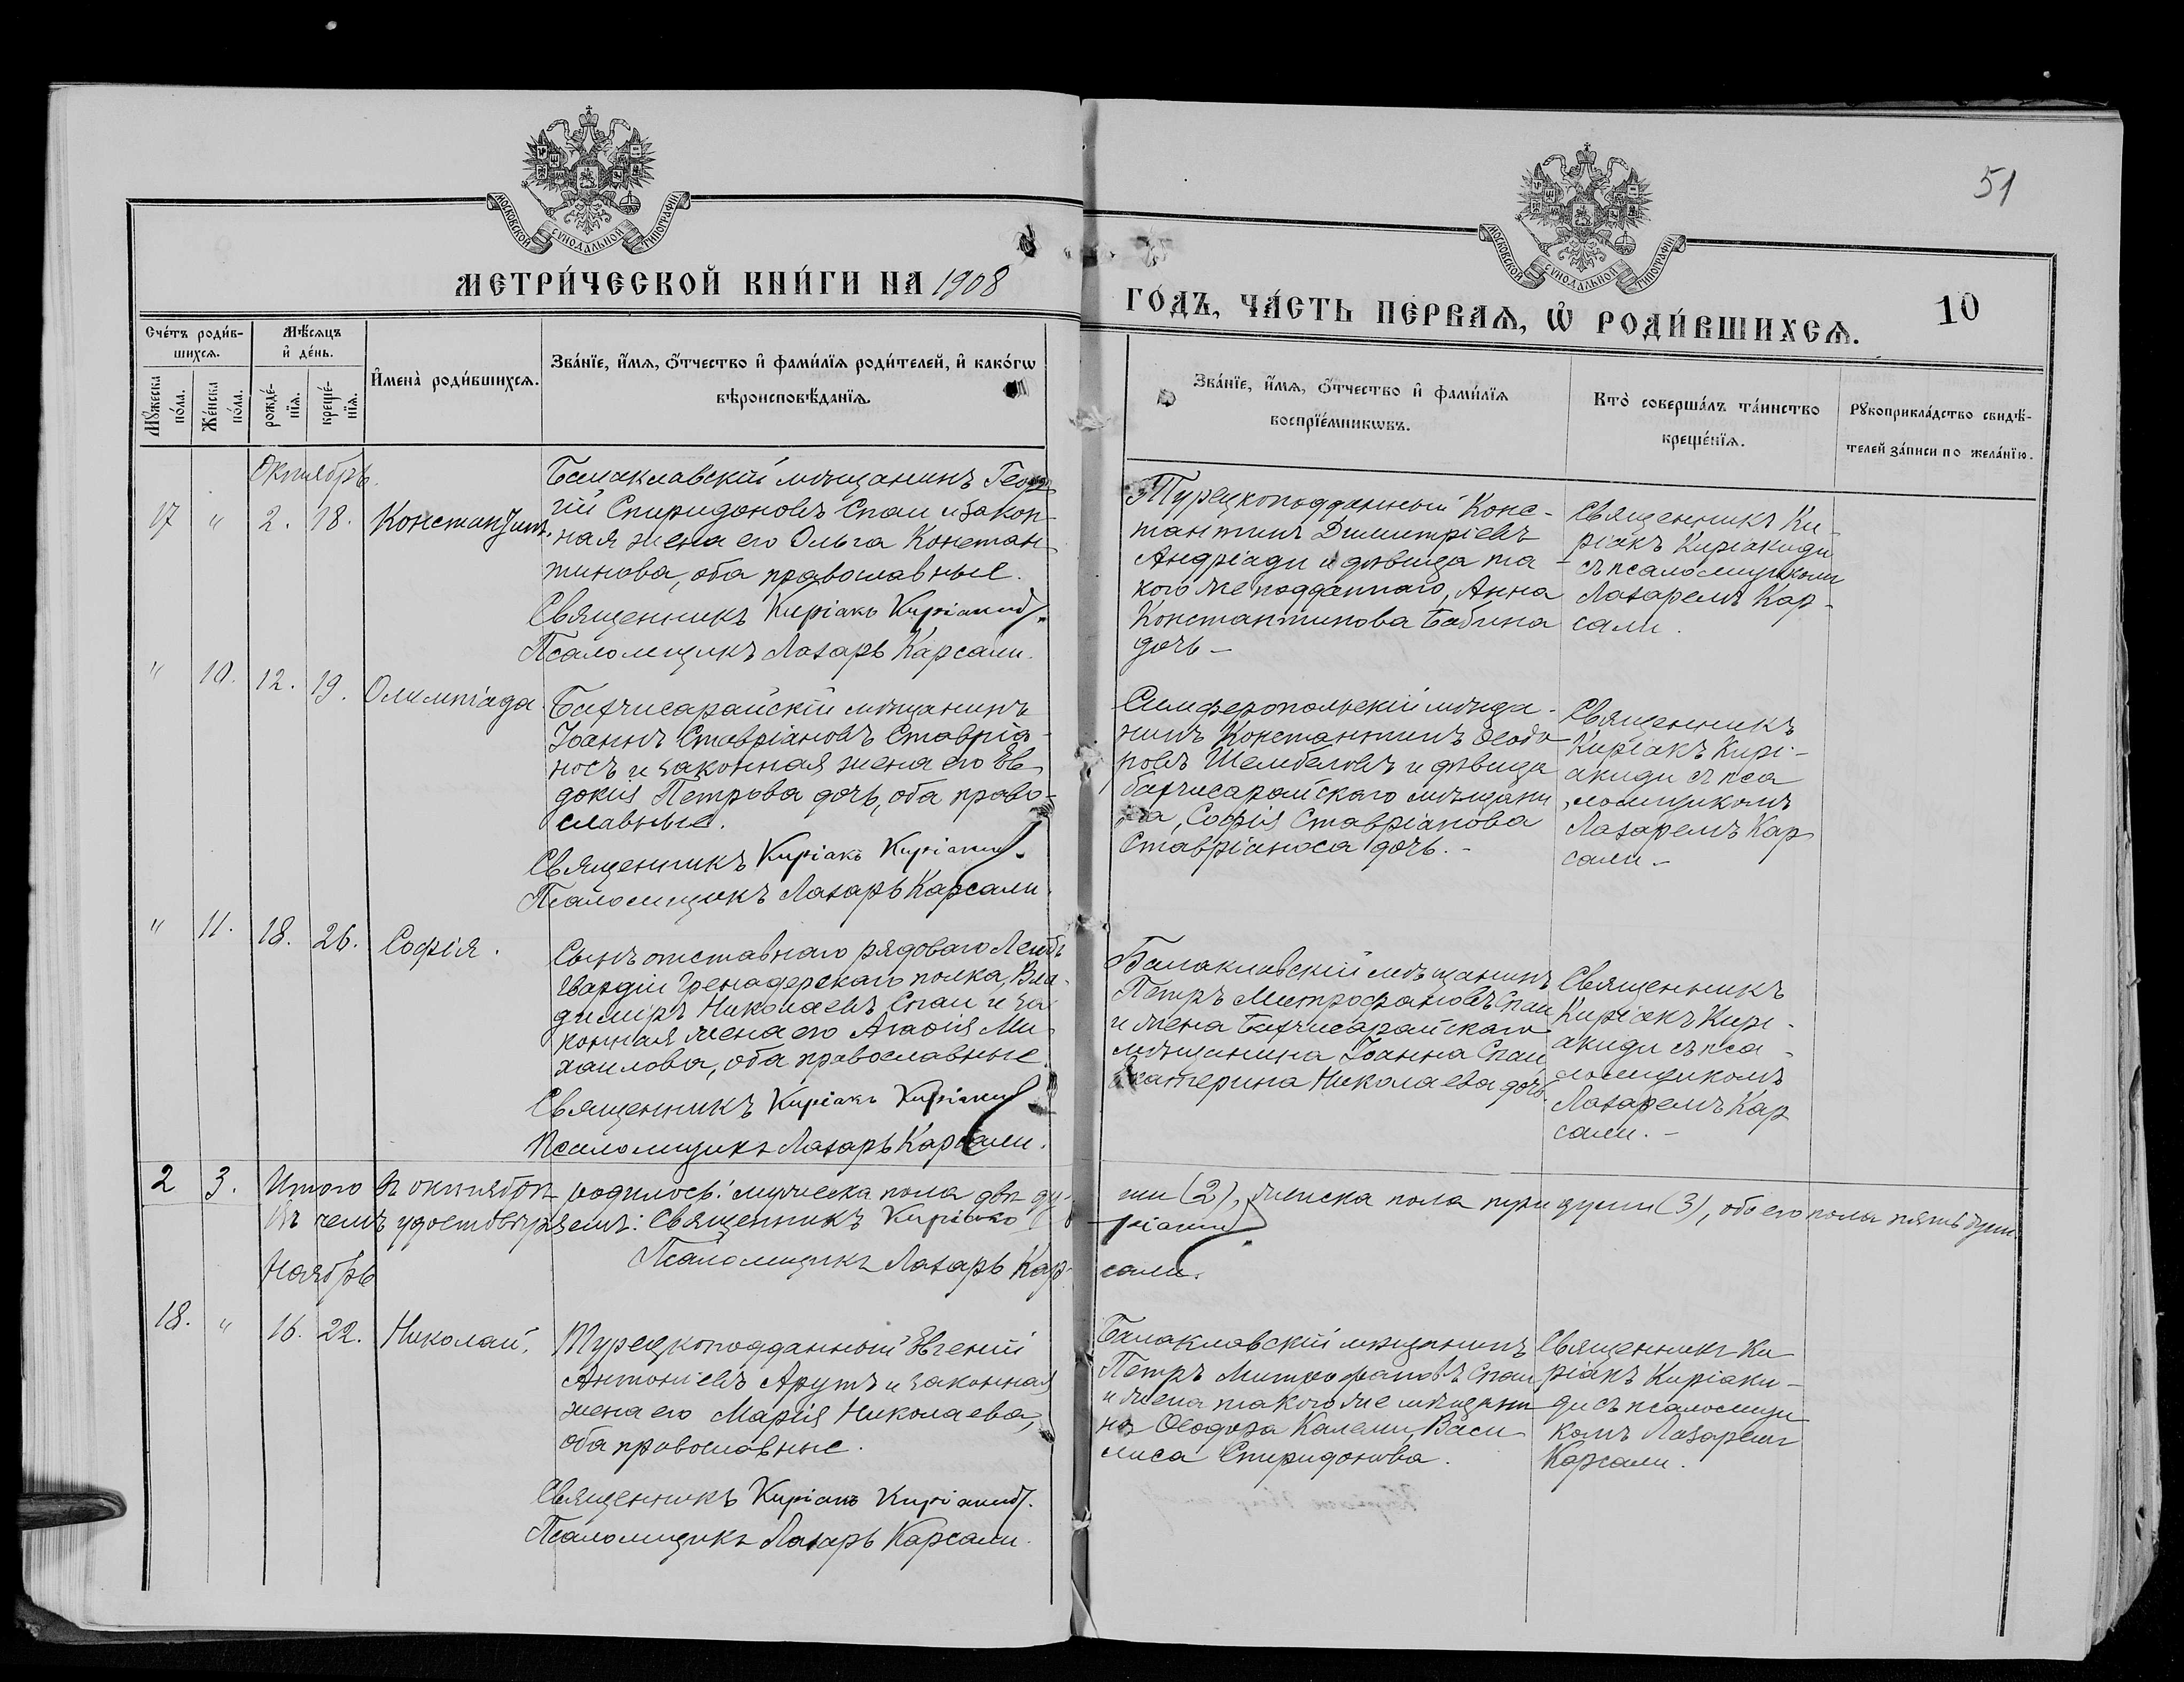 51
МОСКОВСКОЙ СѴНОДАЛЬНОЙ ТИПОГРАФІИ
МОСКОВСКОЙ СѴНОДАЛЬНОЙ ТИПОГРАФІИ
МЕТРИ́ЧЕСКОЙ КНИ́ГИ НА 1908
ГО́ДЪ, ЧА́СТЬ ПЕ́РВАѦ, Ѡ҆ РОДИ́ВШИХСѦ.
10
Сче́тъ роди́в-
шихсѧ.
Мѣ́сѧцъ
и҆ де́нь.
Мꙋ́жеска
по́ла.
Же́нска
по́ла.
рожде́-
нїѧ.
креще́-
нїѧ.
И҆мена̀ роди́вшихсѧ.
Зва́нїе, и҆́мѧ, ѻ҆́тчество и҆ фами́лїѧ роди́телей, и҆ како́гѡ
вѣроисповѣ́данїѧ.
Зва́нїе, и҆́мѧ, ѻ҆́тчество и҆ фами́лїѧ
воспрїе́мникѡвъ.
Кто̀ соверша́лъ та́инство
креще́нїѧ.
Рꙋкоприкла́дство свидѣ́-
телей за́писи по жела́нїю.
Октябрь.
17 " 2. 18. Константинъ.
Балаклавскій мѣщанинъ Геор
гій Спиридоновъ Спаи и закон-
ная жена его Ольга Констан
тинова, оба православные.
Священникъ Киріакъ Киріакиди.
Псаломщикъ Лазарь Карсали.
Турецкоподданный Конс-
тантинъ Димитріевъ
Андріади и дѣвица та-
кого же подданнаго, Анна
Константинова Бабина
дочь –
Священникъ Ки-
ріакъ Киріакиди
съ псаломщикомъ
Лазаремъ Кар-
сали.
" 10. 12. 19. Олимпіада.
Бахчисарайскій мѣщанинъ
Іоаннъ Ставріановъ Ставріа-
носъ и законная жена его Ев
докія Петрова дочь, оба право-
славные.
Священникъ Киріакъ Киріакиди.
Псаломщикъ Лазарь Карсали.
Симферопольскій мѣща-
нинъ Константинъ Ѳеодо
ровъ Шембеловъ и дѣвица
бахчисарайскаго мѣщани
на, Софія Ставріанова
Ставріаноса дочь. –
Священникъ
Киріакъ Кирі-
акиди съ пса
ломщикомъ
Лазаремъ Кар
сали. –
" 11. 18. 26. Софія.
Сынъ отставнаго рядоваго Лейбъ
Гвардіи Гренадерскаго полка, Вла-
диміръ Николаевъ Спаи и за-
конная жена его Агаѳія Ми-
хаилова, оба православные.
Священникъ Киріакъ Киріакиди
Псаломщикъ Лазарь Карсали.
Балаклавскій мѣщанинъ
Петръ Митрофановъ Спаи
и жена Бахчисарайскаго
мѣщанина Іоанна Спаи,
Екатерина Николаева дочь.
Священникъ
Киріакъ Кирі-
акиди съ пса-
ломщикомъ
Лазаремъ Кар
сали. –
2 3. Итого въ октябрѣ родилось: мужеска пола двѣ ду-
ши (2), женска пола три души (3), обоего пола пять душъ
Въ чемъ удостовѣряемъ: Священникъ Киріакъ Ки
ріакиди.
Псаломщикъ Лазарь Кар-
сали.
Ноябрь
18. " 16. 22. Николай.
Турецкоподданный Евгеній
Антоніевъ Арутъ и законная
жена его Марія Николаева,
оба православные.
Священникъ Киріакъ Киріакиди.
Псаломщикъ Лазарь Карсали.
Балаклавскій мѣщанинъ
Петръ Митрофановъ Спаи
и жена такого же мѣщани
на Ѳеодора Калеми, Васи
лиса Спиридонова.
Священникъ Ки
ріакъ Киріаки-
ди съ псаломщи
комъ Лазаремъ
Карсали.